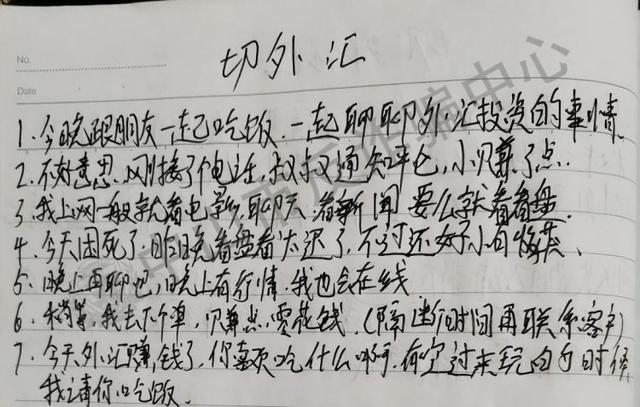 No.
切外汇
Date
1.今晚跟朋友一起吃饭.一起聊聊外汇投资的事情
2.不好意思.刚接了个电话.叔叔通知平仓,小赚了点.
3.我上网一般就看电影,聊天.看新闻 要么就看看盘.
4.今天困死了.昨晚看盘看太迟了,不过还好小有收获.
5.晚上再聊吧,晚上有行情.我也会在线
6.稍等,我去下个单,赚点零花钱.(隔断时间再联系客户)
7.今天外汇赚钱了,你喜欢吃什么啊.有空过来玩的时候
我请你吃饭.